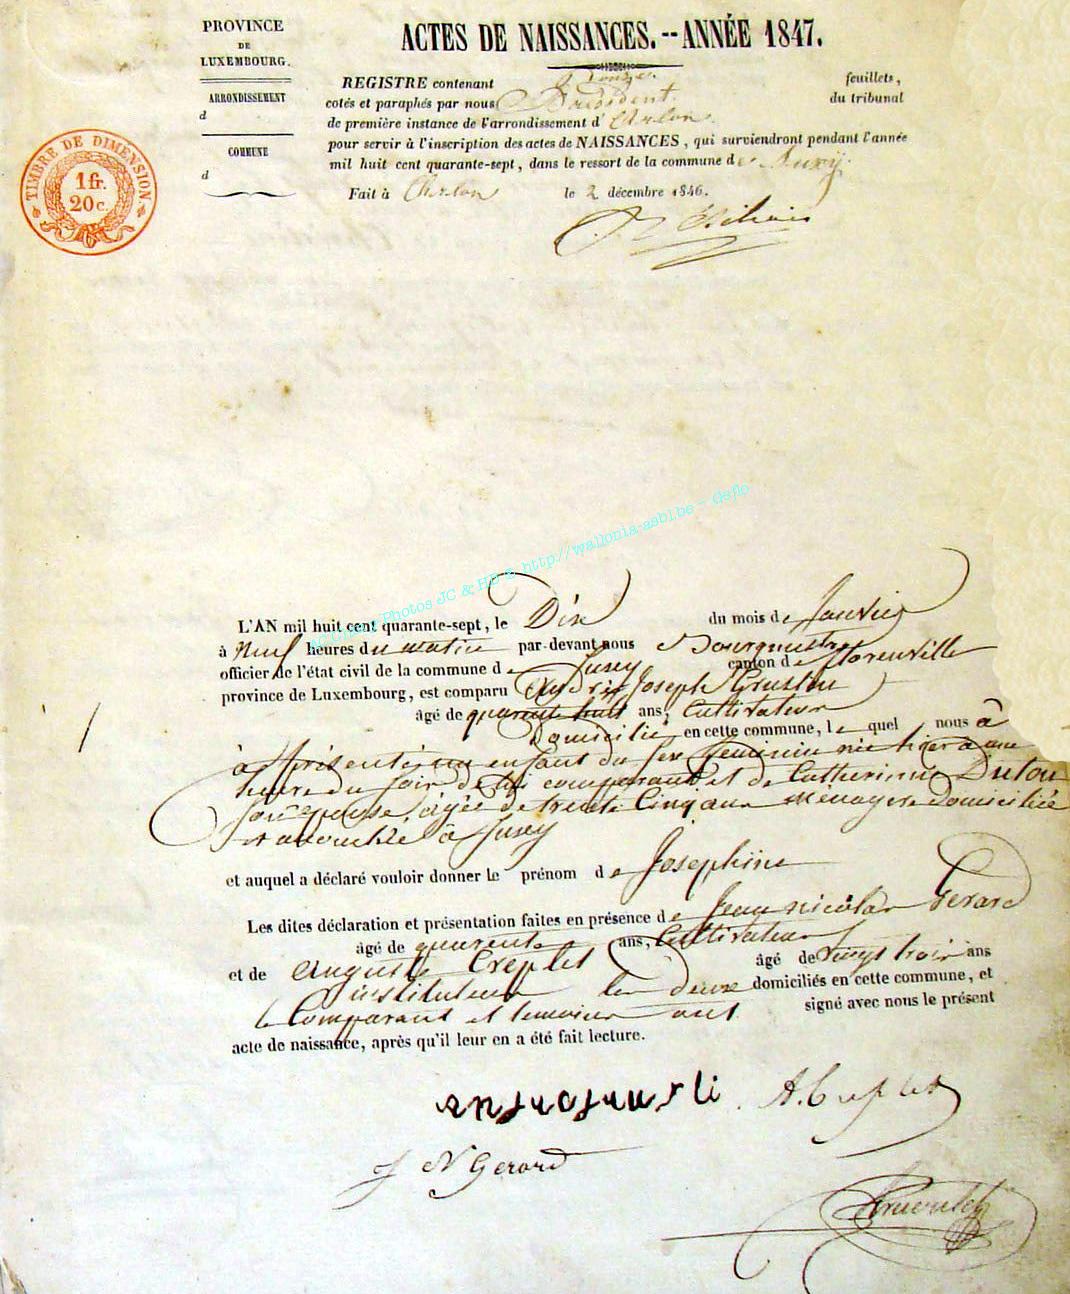 PROVINCE
DE
LUXEMBOURG.
ARRONDISSEMENT
d
COMMUNE
d
TIMBRE DE DIMENSION
1 fr.
20 c.
ACTES DE NAISSANCES.--ANNÉE 1847.
REGISTRE contenant Douze feuillets,
cotés et paraphés par nous Président du tribunal
de première instance de l'arrondissement d'Arlon.
pour servir à l'inscription des actes de NAISSANCES, qui surviendront pendant l'année
mil huit cent quarante-sept, dans le ressort de la commune de
Fait à Arlon le 2 décembre 1846.
Photos JC & HB & http://wallonia-asbl.be - deflo
L'AN mil huit cent quarante-sept, le Dix du mois de Janvier
à neuf heures du matin par-devant nous Bourgmestre
officier de l'état civil de la commune de Jusey canton de florenville
province de Luxembourg, est comparu Joseph
âgé de quarente huit ans, Cultivateur
Domicilié en cette commune, le quel nous à
à présenté un enfant du sexe feminin née hier à une
heure du soir de lui comparant et de Catherinne Dulou
son epouse, agée de trente Cinq ans Ménagere Domiciliée
à Jusey
et auquel a déclaré vouloir donner le prénom de Josephine
Les dites déclaration et présentation faites en présence de Jean nicolas Gerard
âgé de quarente ans, Cultivateur
et de Auguste Creplet âgé de vingt trois ans
instituteur les deux domiciliés en cette commune, et
le Comparant et temoins ont signé avec nous le présent
acte de naissance, après qu'il leur en a été fait lecture.
A. Creplet
J N Gerard